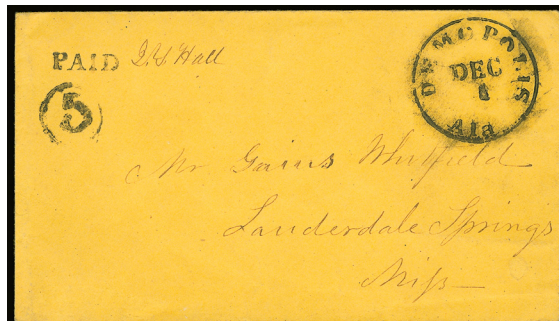 PAID
5
J.Y. Hall
DEMOPOLIS
DEC
1
Ala
Mr Gaius Whitfield
Lauderdale Springs
Miss